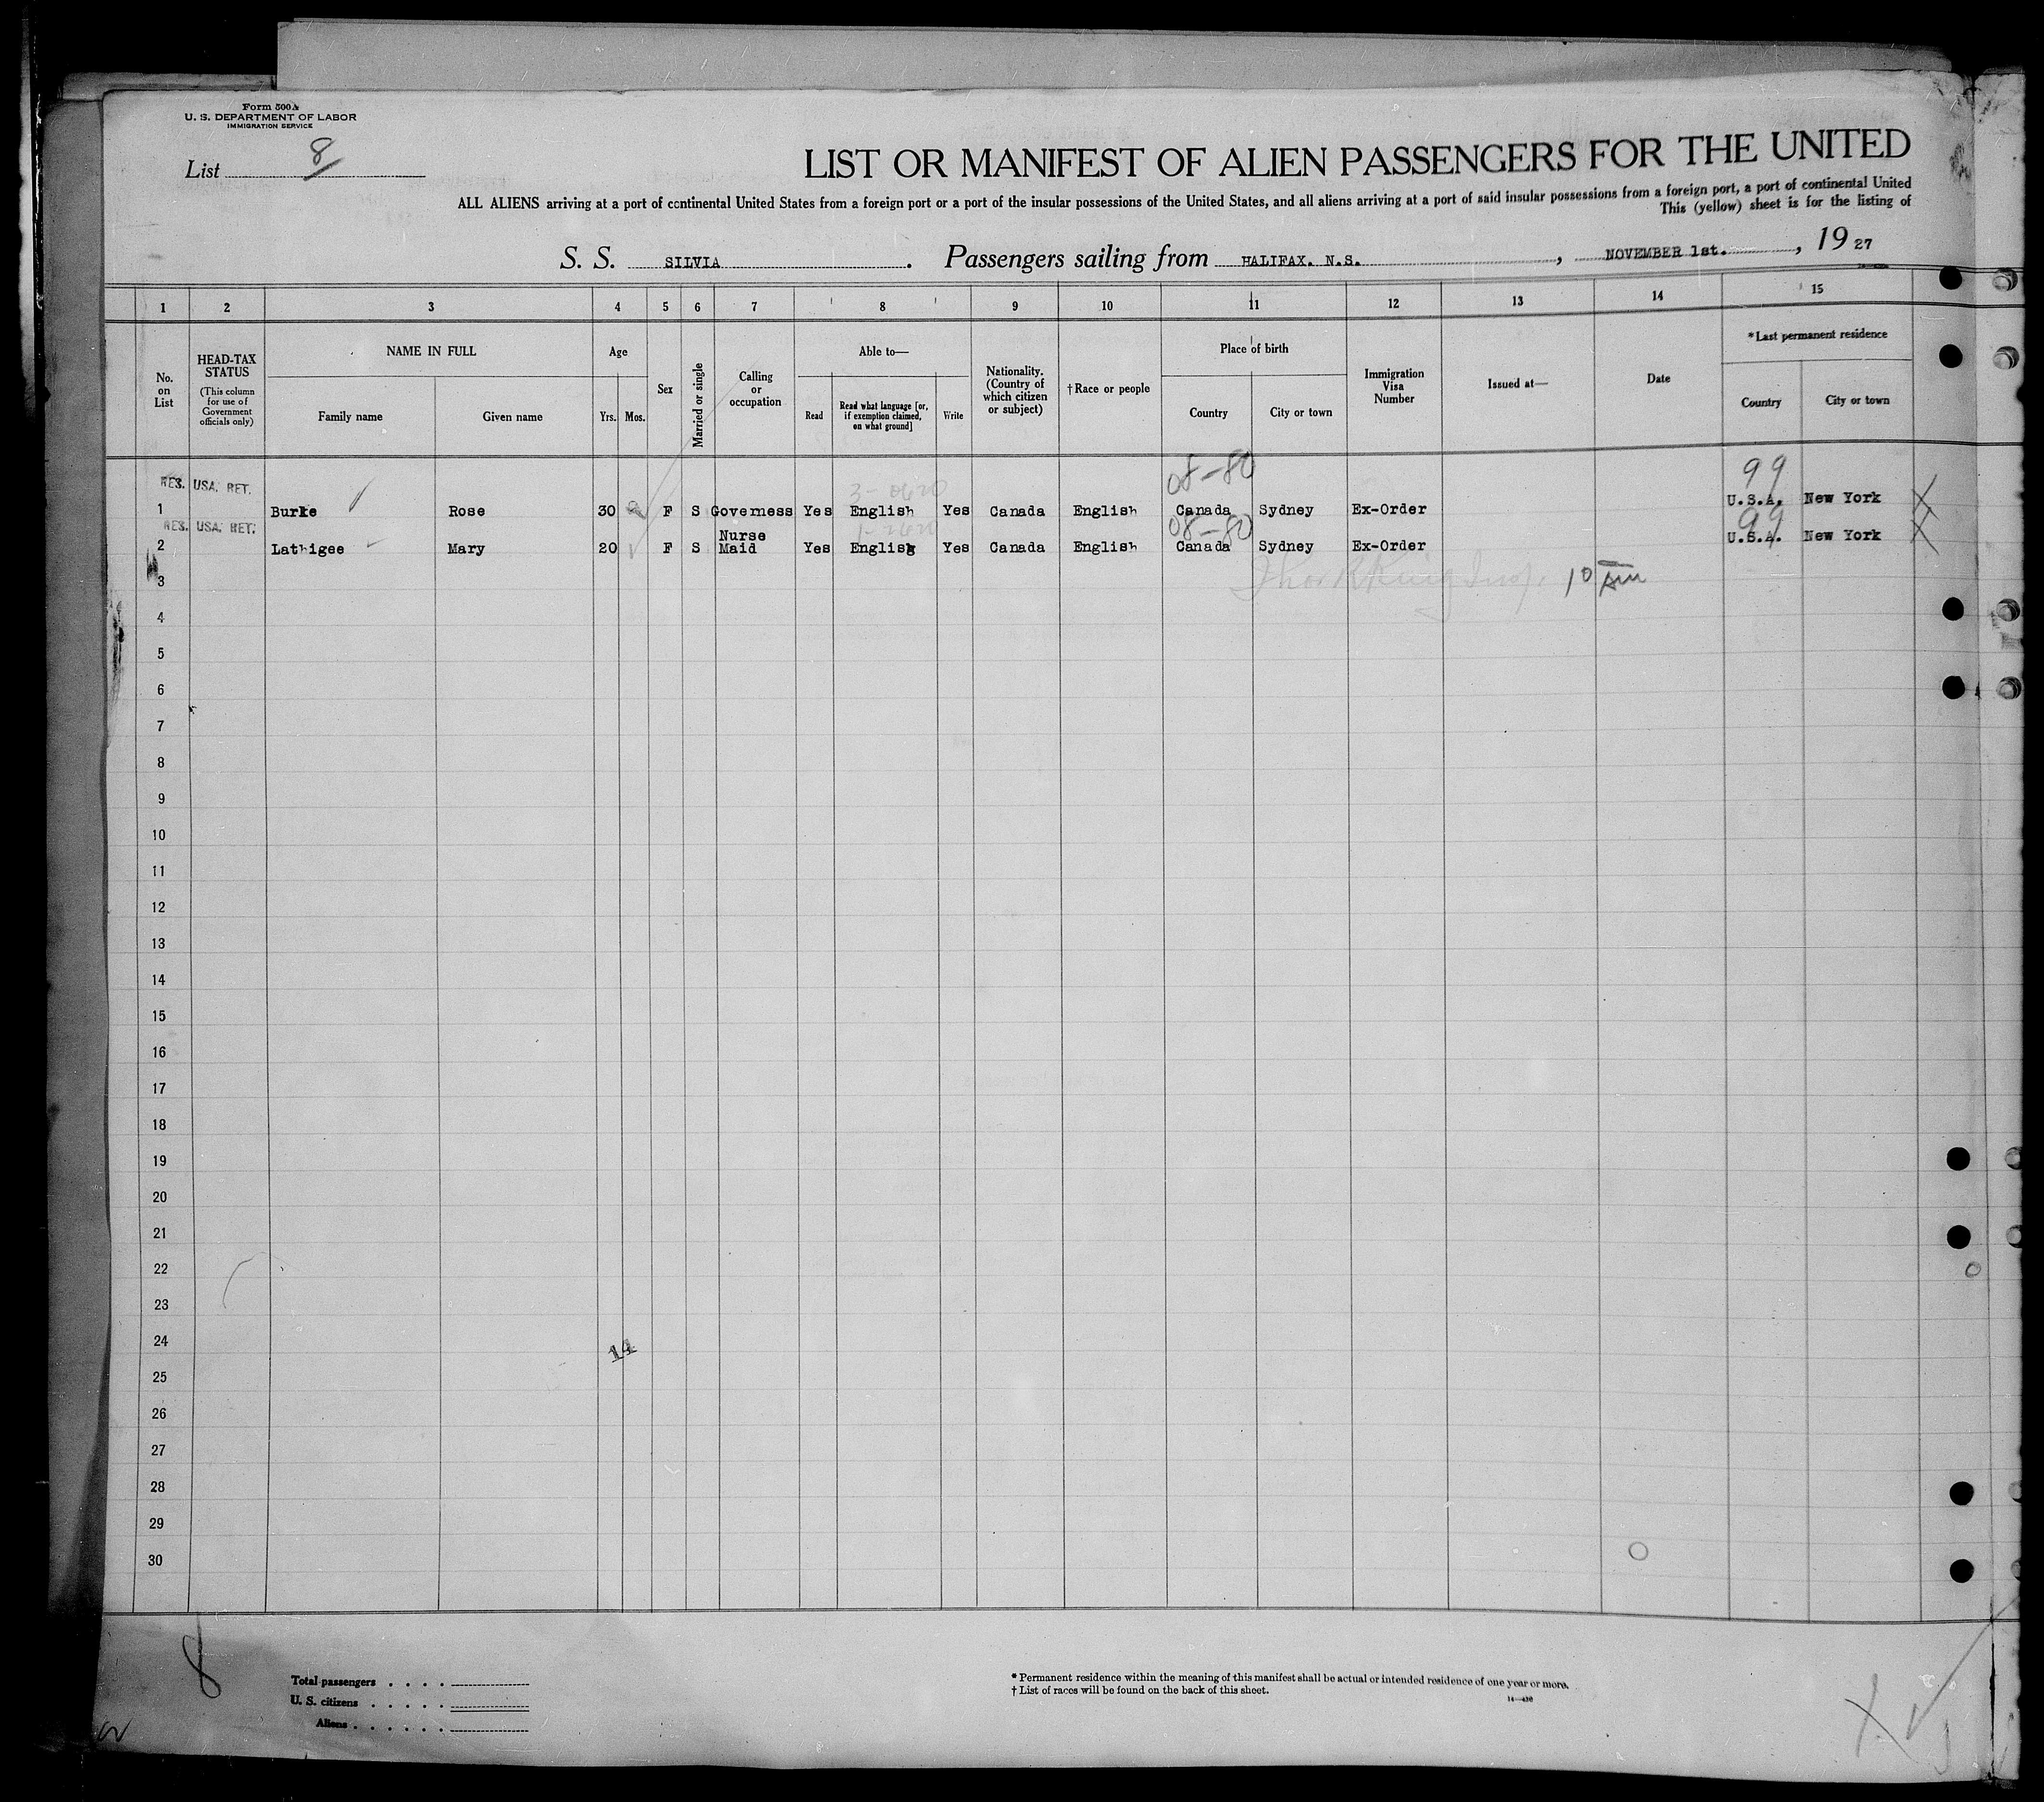 Form 500A
U. S. DEPARTMENT OF LABOR
IMMIGRATION SERVICE
List 8
LIST OR MANIFEST OF ALIEN PASSENGERS FOR THE UNITED
ALL ALIENS arriving at a port of continental United States from a foreign port or a port of the insular possessions of the United States, and all aliens arriving at a port of said insular possessions from a foreign port, a port of continental United
This (yellow) sheet is for the listing of
S. S. SILVIA. Passengers sailing from HALIFAX. N.S., NOVEMBER 1st., 19 27
1 2 3 4 5 6 7 8 9 10 11 12 13 14 15
No. on List
HEAD-TAX STATUS
(This column for use of Government officials only)
NAME IN FULL
Family name
Given name
Age
Yrs.
Mos.
Sex
Married or single
Calling or occupation
Able to—
Read
Read what language [or, if exemption claimed, on what ground]
Write
Nationality. (Country of which citizen or subject)
†Race or people
Place of birth
Country
City or town
Immigration Visa Number
Issued at—
Date
*Last permanent residence
Country
City or town
08-80 99
RES. USA. RET.
1 Burke Rose 30 F S Governess Yes English Yes Canada English Canada Sydney Ex-Order U.S.A. New York
08-80 99
RES. USA. RET.
2 Lathigee Mary 20 F S Nurse Maid Yes English Yes Canada English Canada Sydney Ex-Order U.S.A. New York
3 10 AM
4
5
6
7
8
9
10
11
12
13
14
15
16
17
18
19
20
21
22
23
24 14
25
26
27
28
29
30
8
Total passengers . . . .
U. S. citizens . . . . .
Aliens . . . . . .
* Permanent residence within the meaning of this manifest shall be actual or intended residence of one year or more.
† List of races will be found on the back of this sheet.